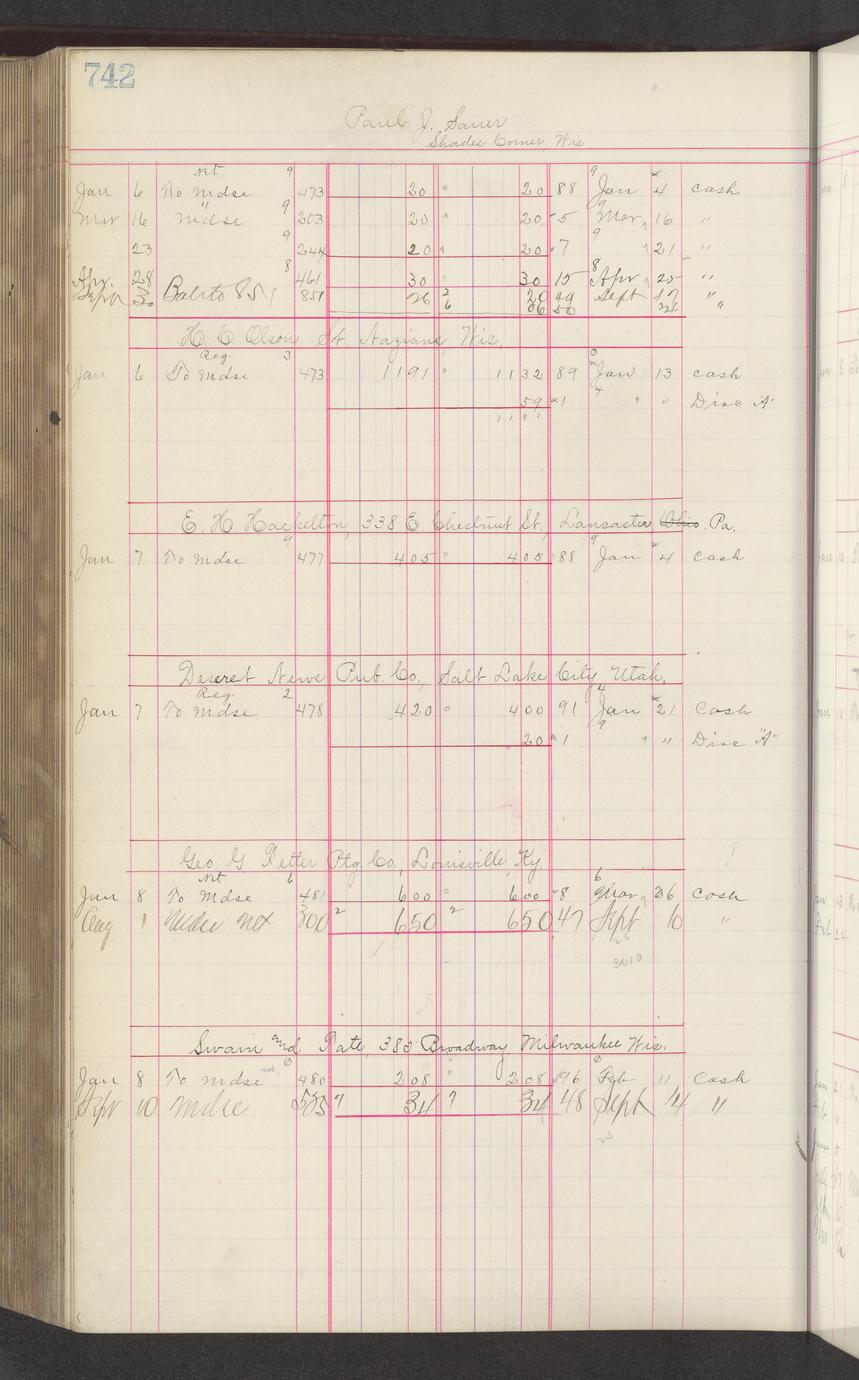 742
Paul J. Sauer
Shades Corner, Wis
net 9 9
Jan 6 To Mdse 473 20 20 88 Jan 4 cash
Mar 16 " Mdse 9 203 20 20 5 Mar 16 "
23 9 244 20 20 7 9 21 "
Apr. 28 8 461 30 30 15 8 Apr 25 "
Sept 30 Bal to 851 851 26 2 20 49 Sept 17 "
6 06 50 "
H. C. Olson St. Nazianz, Wis.
Reg. 3
Jan 6 To Mdse 473 1191 1132 89 Jan 13 cash
59 1 " Disc "A"
1191
E. H. Hackelton, 338 E. Chestnut St., Lancaster Ohio. Pa.
Jan 7 To Mdse 9 477 405 405 88 9 Jan 4 cash
Deseret News Pub. Co., Salt Lake City, Utah.
Reg. 2 4
Jan 7 To Mdse 478 420 400 91 Jan 21 Cash
20 1 9 " Disc "A"
Geo. G. Fetter Ptg. Co., Louisville, Ky.
net 6 6
Jan 8 To Mdse 481 600 600 8 Mar 26 Cash
Aug 1 Mdse net 300 2 650 2 650 47 Sept 10 "
Swain and Tate, 385 Broadway, Milwaukee Wis.
Jan 8 To Mdse net 480 208 208 96 Feb 11 Cash
Sept 10 Mdse 505 9 34 9 34 48 Sept 14 "